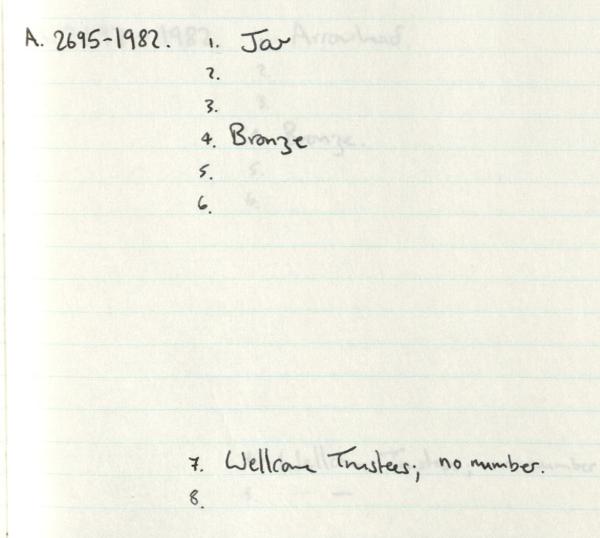 A. 2695-1982. 1. Jar
2.
3.
4. Bronze
5.
6.
7. Wellcome Trustees; no number.
8.